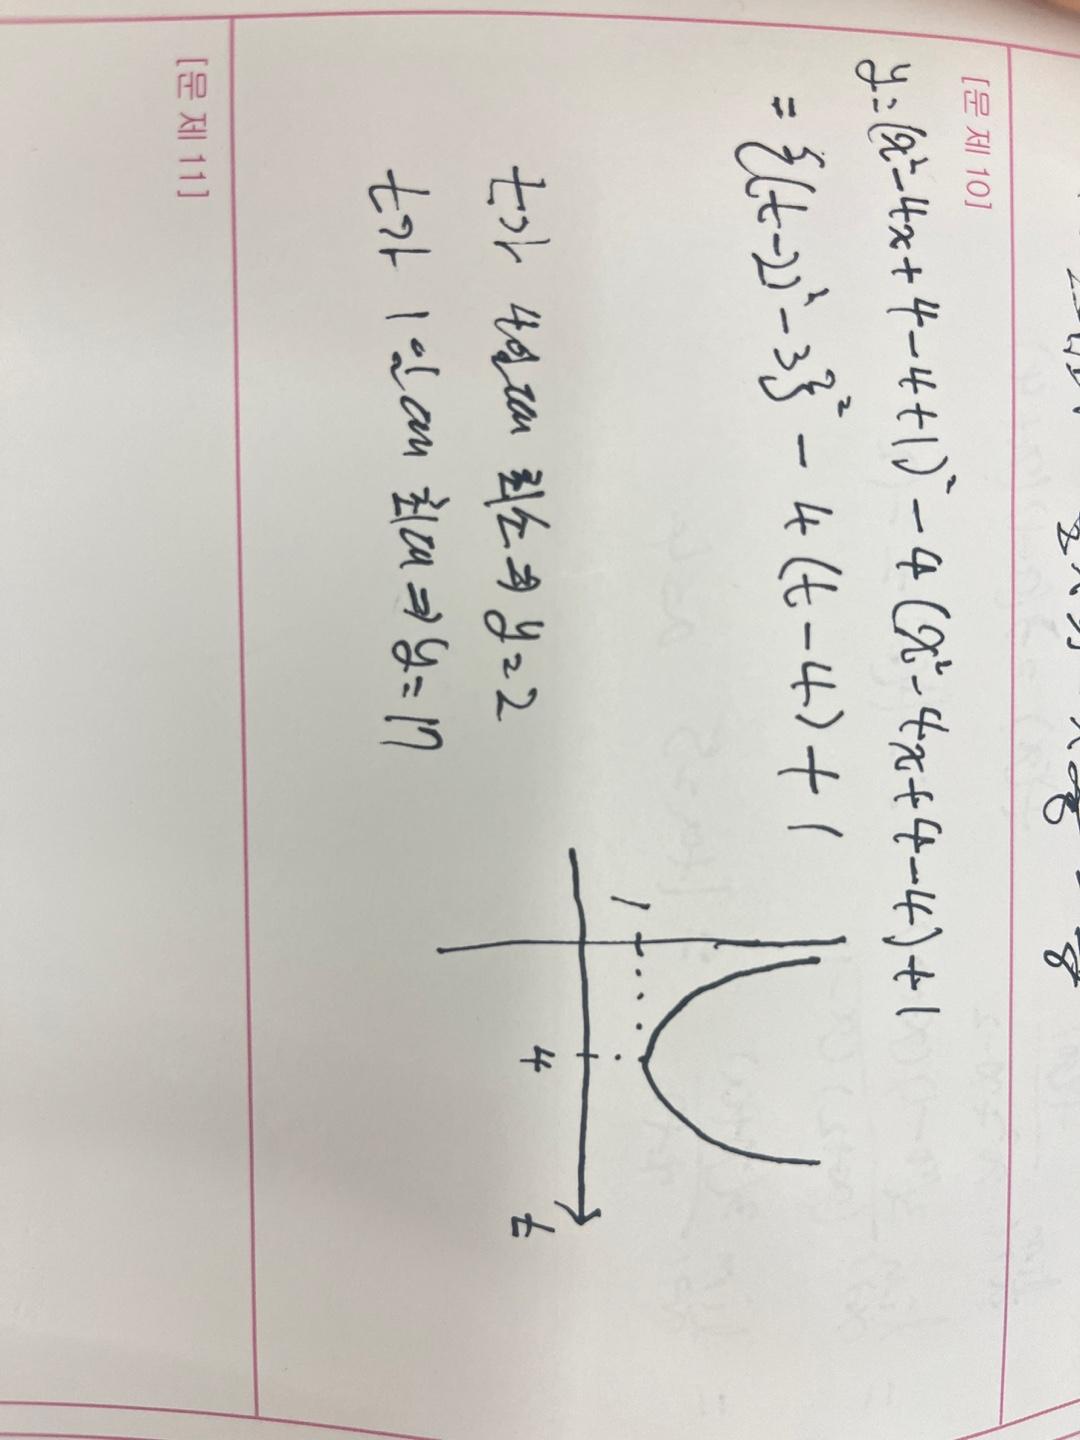 [문제 10]
y=(x²-4x+4-4+1)²-4(x²-4x+4-4)+1
={(t-2)²-3}²-4(t-4)+1
1
4
t
t가 4일때 최소⇒y=2
t가 1일때 최대⇒y=17
[문제 11]